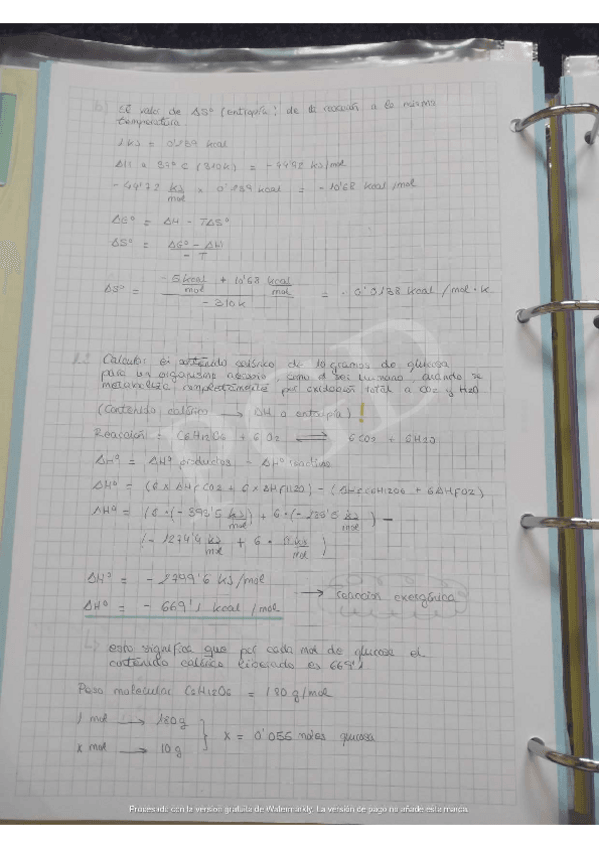 b) El valor de ΔSº (entropía) de la reacción a la misma
temperatura
1 KJ = 0'239 kcal
ΔH a 37º C (310K) = -44'72 KJ/mol
-44'72 KJ/mol × 0'239 kcal = -10'68 kcal/mol
ΔGº = ΔH - TΔSº
ΔSº = ΔGº - ΔH / -T
ΔSº = -5 kcal/mol + 10'68 kcal/mol / -310K = -0'0138 kcal/mol·K
Calcular el contenido calórico de 10 gramos de glucosa
para un organismo aerobio, como el ser humano, cuando se
metaboliza completamente por oxidación total a CO2 y H2O
(Contenido calórico → ΔH o entalpía) !
Reacción = C6H12O6 + 6O2 ⇌ 6CO2 + 6H2O
ΔHº = ΔHº productos - ΔHº reactivo
ΔHº = (6 × ΔHfCO2 + 6 × ΔHfH2O) - (ΔHfC6H12O6 + 6ΔHfO2)
ΔHº = (6·(-393'5 KJ/mol) + 6·( KJ/mol) -
(-1274'4 KJ/mol + 6· KJ/mol)
ΔHº = -2799'6 KJ/mol
ΔHº = -669'1 kcal/mol → reacción exergónica
esto significa que por cada mol de glucosa el
contenido calórico liberado es 669'1
Peso molecular C6H12O6 = 180 g/mol
1 mol → 180g
x mol → 10g } x = 0'055 moles glucosa
Procesado con la versión gratuita de Watermarkly. La versión de pago no añade esta marca.